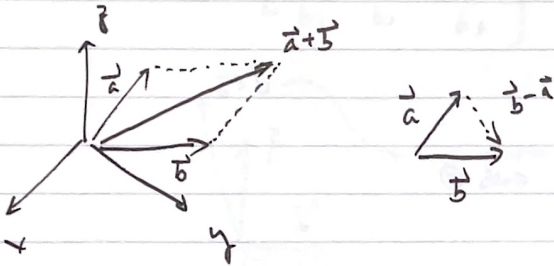 z
a⃗+b⃗
a⃗
b⃗
x
y
a⃗
b⃗-a⃗
b⃗